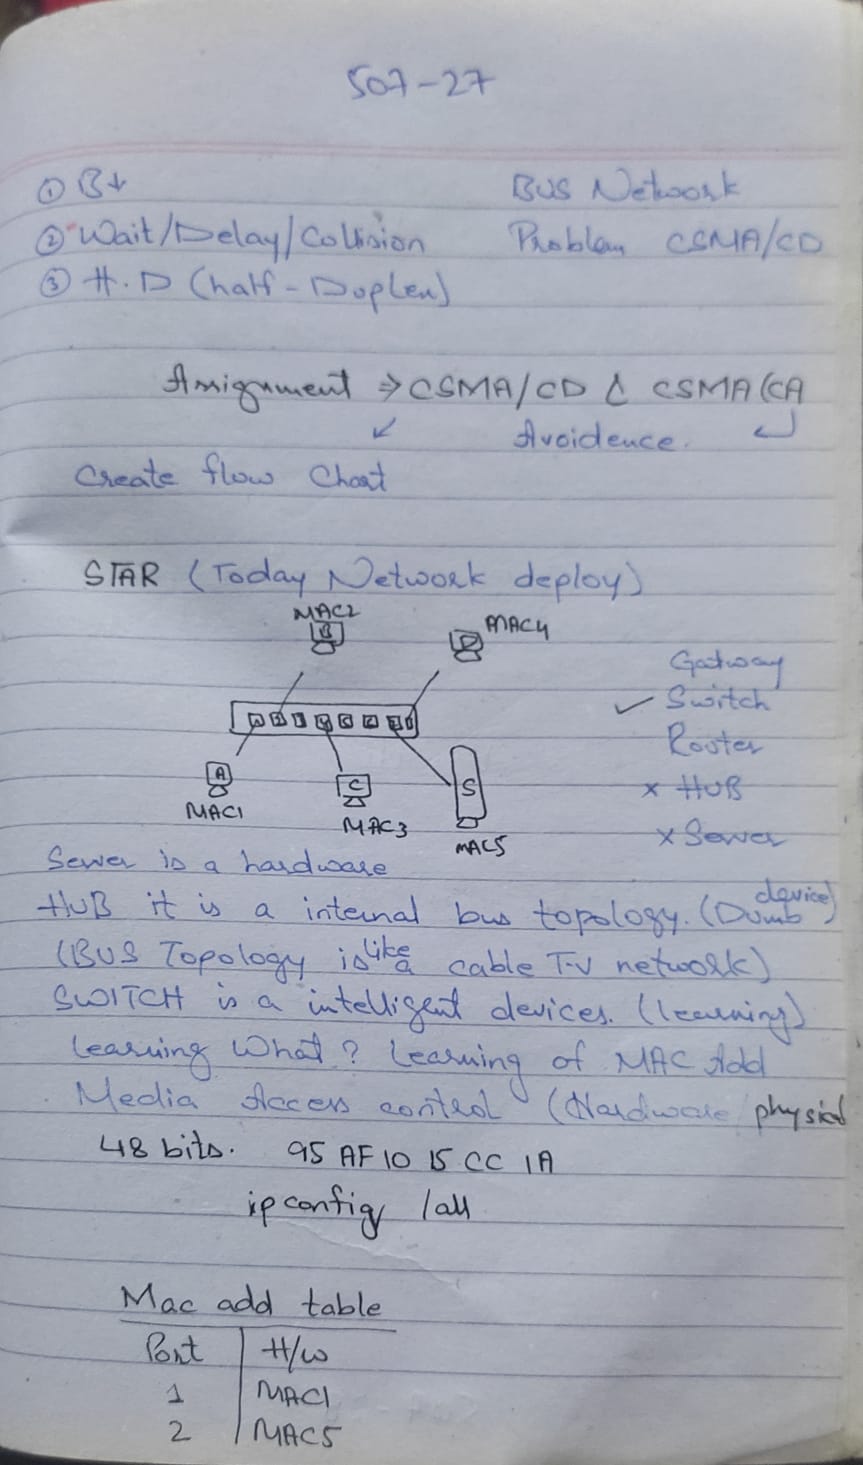 507-27
① B↓ BUS Network
② Wait/Delay/Collision Problem CSMA/CD
③ H.D (half-Duplex)
Assignment ⇒ CSMA/CD & CSMA/CA
↙ Avoidence. ↲
Create flow Chart
STAR (Today Network deploy)
MAC2
B
MAC4
D
Gateway
✓ Switch
Router
x HUB
x Server
A
MAC1
C
MAC3
S
MAC5
Server is a hardware
HUB it is a internal bus topology. (Dumb device)
(BUS Topology is like a cable T.V network)
SWITCH is a intelligent devices. (learning)
learning What? learning of MAC Add
Media Access control (Hardware/physical
48 bits. 95 AF 10 15 CC 1A
ipconfig /all
Mac add table
Port H/W
1 MAC1
2 MAC5